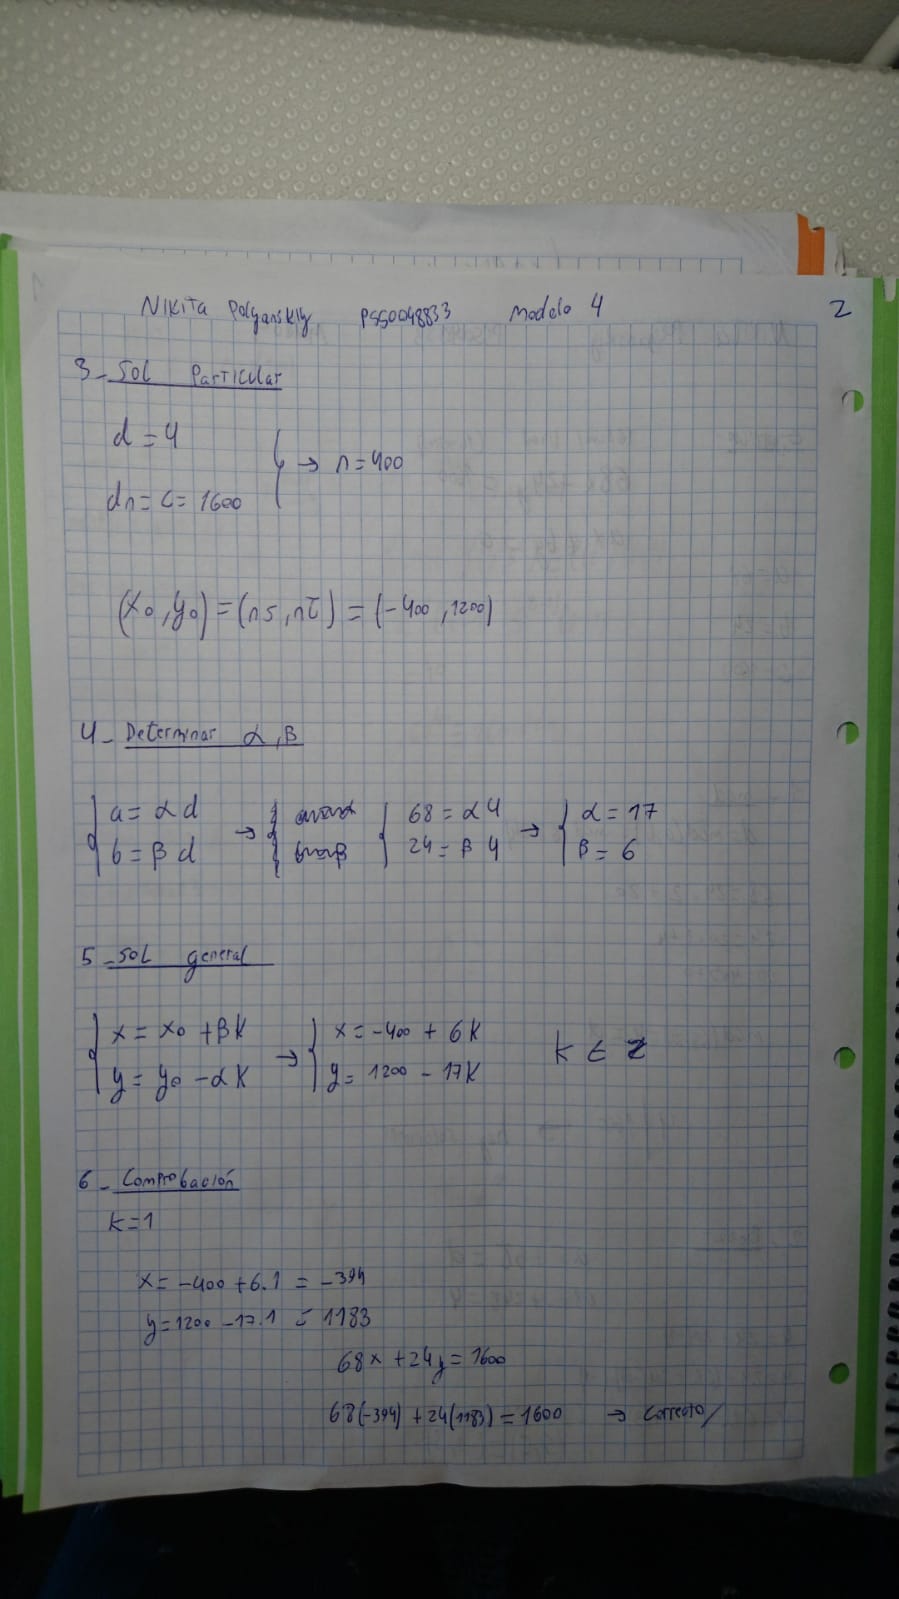 Nikita Polyanskiy PSS0048833 Modelo 4 2
3_ Sol Particular
d = 4
→ n = 400
dn = c = 1600
(x₀, y₀) = (ns, nt) = (-400, 1200)
4_ Determinar α, β
a = α d → 68 = α 4 → α = 17
b = β d 24 = β 4 β = 6
5_ Sol general
x = x₀ + βK → x = -400 + 6K K ∈ Z
y = y₀ - αK y = 1200 - 17K
6_ Comprobación
K = 1
x = -400 + 6.1 = -394
y = 1200 - 17.1 = 1183
68x + 24y = 1600
68(-394) + 24(1183) = 1600 → Correcto/